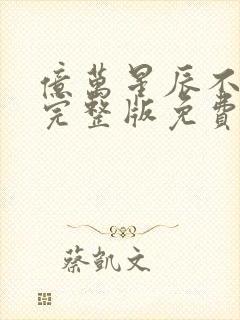 億萬星辰不
完整版免費
蔡凱文